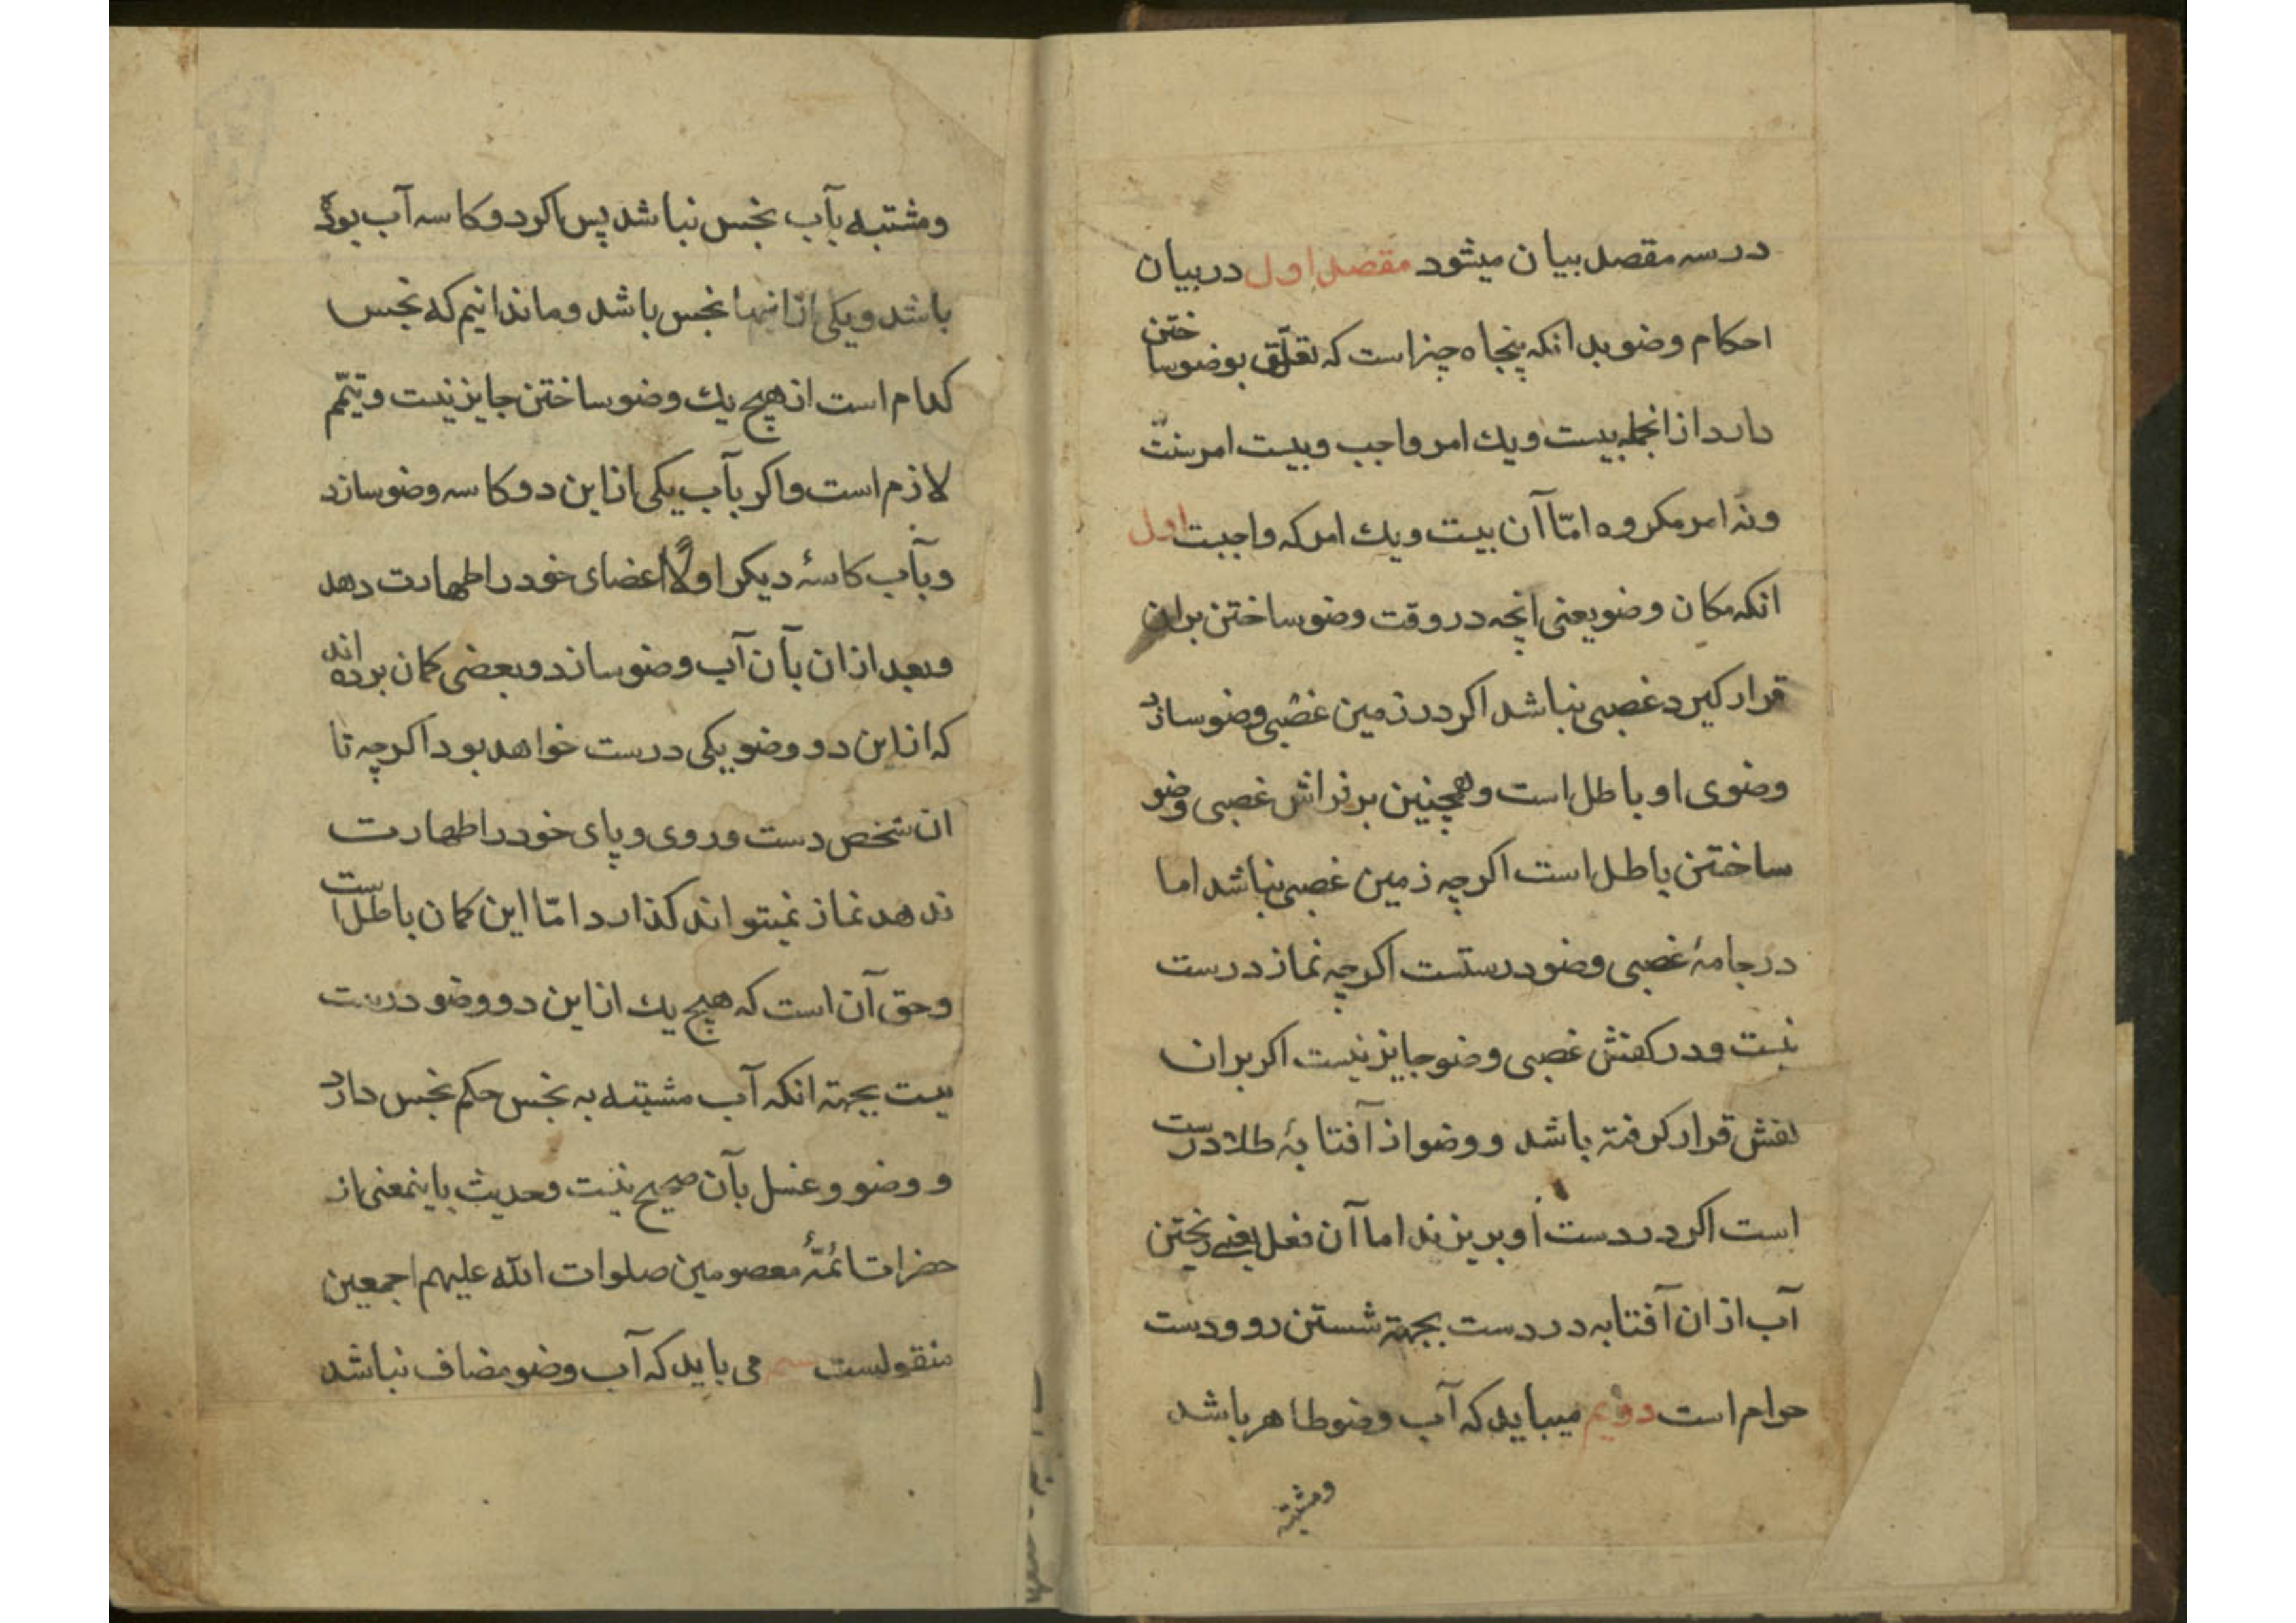 در سه مقصد بیان میشود مقصد اول در بیان
احکام وضو بدانکه پنجاه چیز است که تعلّق بوضو ساختن
دارد از انجمله بیست و یک امر واجب و بیست امر سنّت
و نه امر مکروه امّا آن بیست و یک امر که واجبست اول
انکه مکان وضو یعنی انچه در وقت وضو ساختن بر ان
قرار کیرد غصبی نباشد اکر در زمین غصبی وضو سازد
وضوی او باطل است و همچنین بر فراش غصبی وضو
ساختن باطل است اکرچه زمین غصبی نباشد اما
در جامهٔ غصبی وضو درستست اکرچه نماز درست
نیست و در کفش غصبی وضو جایز نیست اکر بر ان
کفش قرار کرفته باشد و وضو از آفتابهٔ طلا درست
است اکر در دست او بریزند اما آن فعل یعنی ریختن
آب از ان آفتابه در دست بجهة شستن رو و دست
حرام است دویم میباید که آب وضو طاهر باشد
ومشتبه
و مشتبه بآب نجس نباشد پس اکر دو کاسه آب بوده
باشد و یکی از انها نجس باشد و ما ندانیم که نجس
کدام است از هیچ یک وضو ساختن جایز نیست و تیمّم
لازم است و اکر بآب یکی از این دو کاسه وضو سازد
و بآب کاسهٔ دیکر اولًا اعضای خود را طهارت دهد
و بعد از ان بآن آب وضو سازد و بعضی کمان برده اند
که از این دو وضو یکی درست خواهد بود اکرچه تا
ان شخص دست و روی و پای خود را طهارت
ندهد نماز نمیتواند کذارد امّا این کمان باطل است
و حق آن است که هیچ یک از این دو وضو درست
نیست بجهة انکه آب مشتبه به نجس حکم نجس دارد
و وضو و غسل بآن صحیح نیست و حدیث باینمعنی از
حضرات ائمّهٔ معصومین صلوات الله علیهم اجمعین
منقولست می باید که آب وضو مضاف نباشد